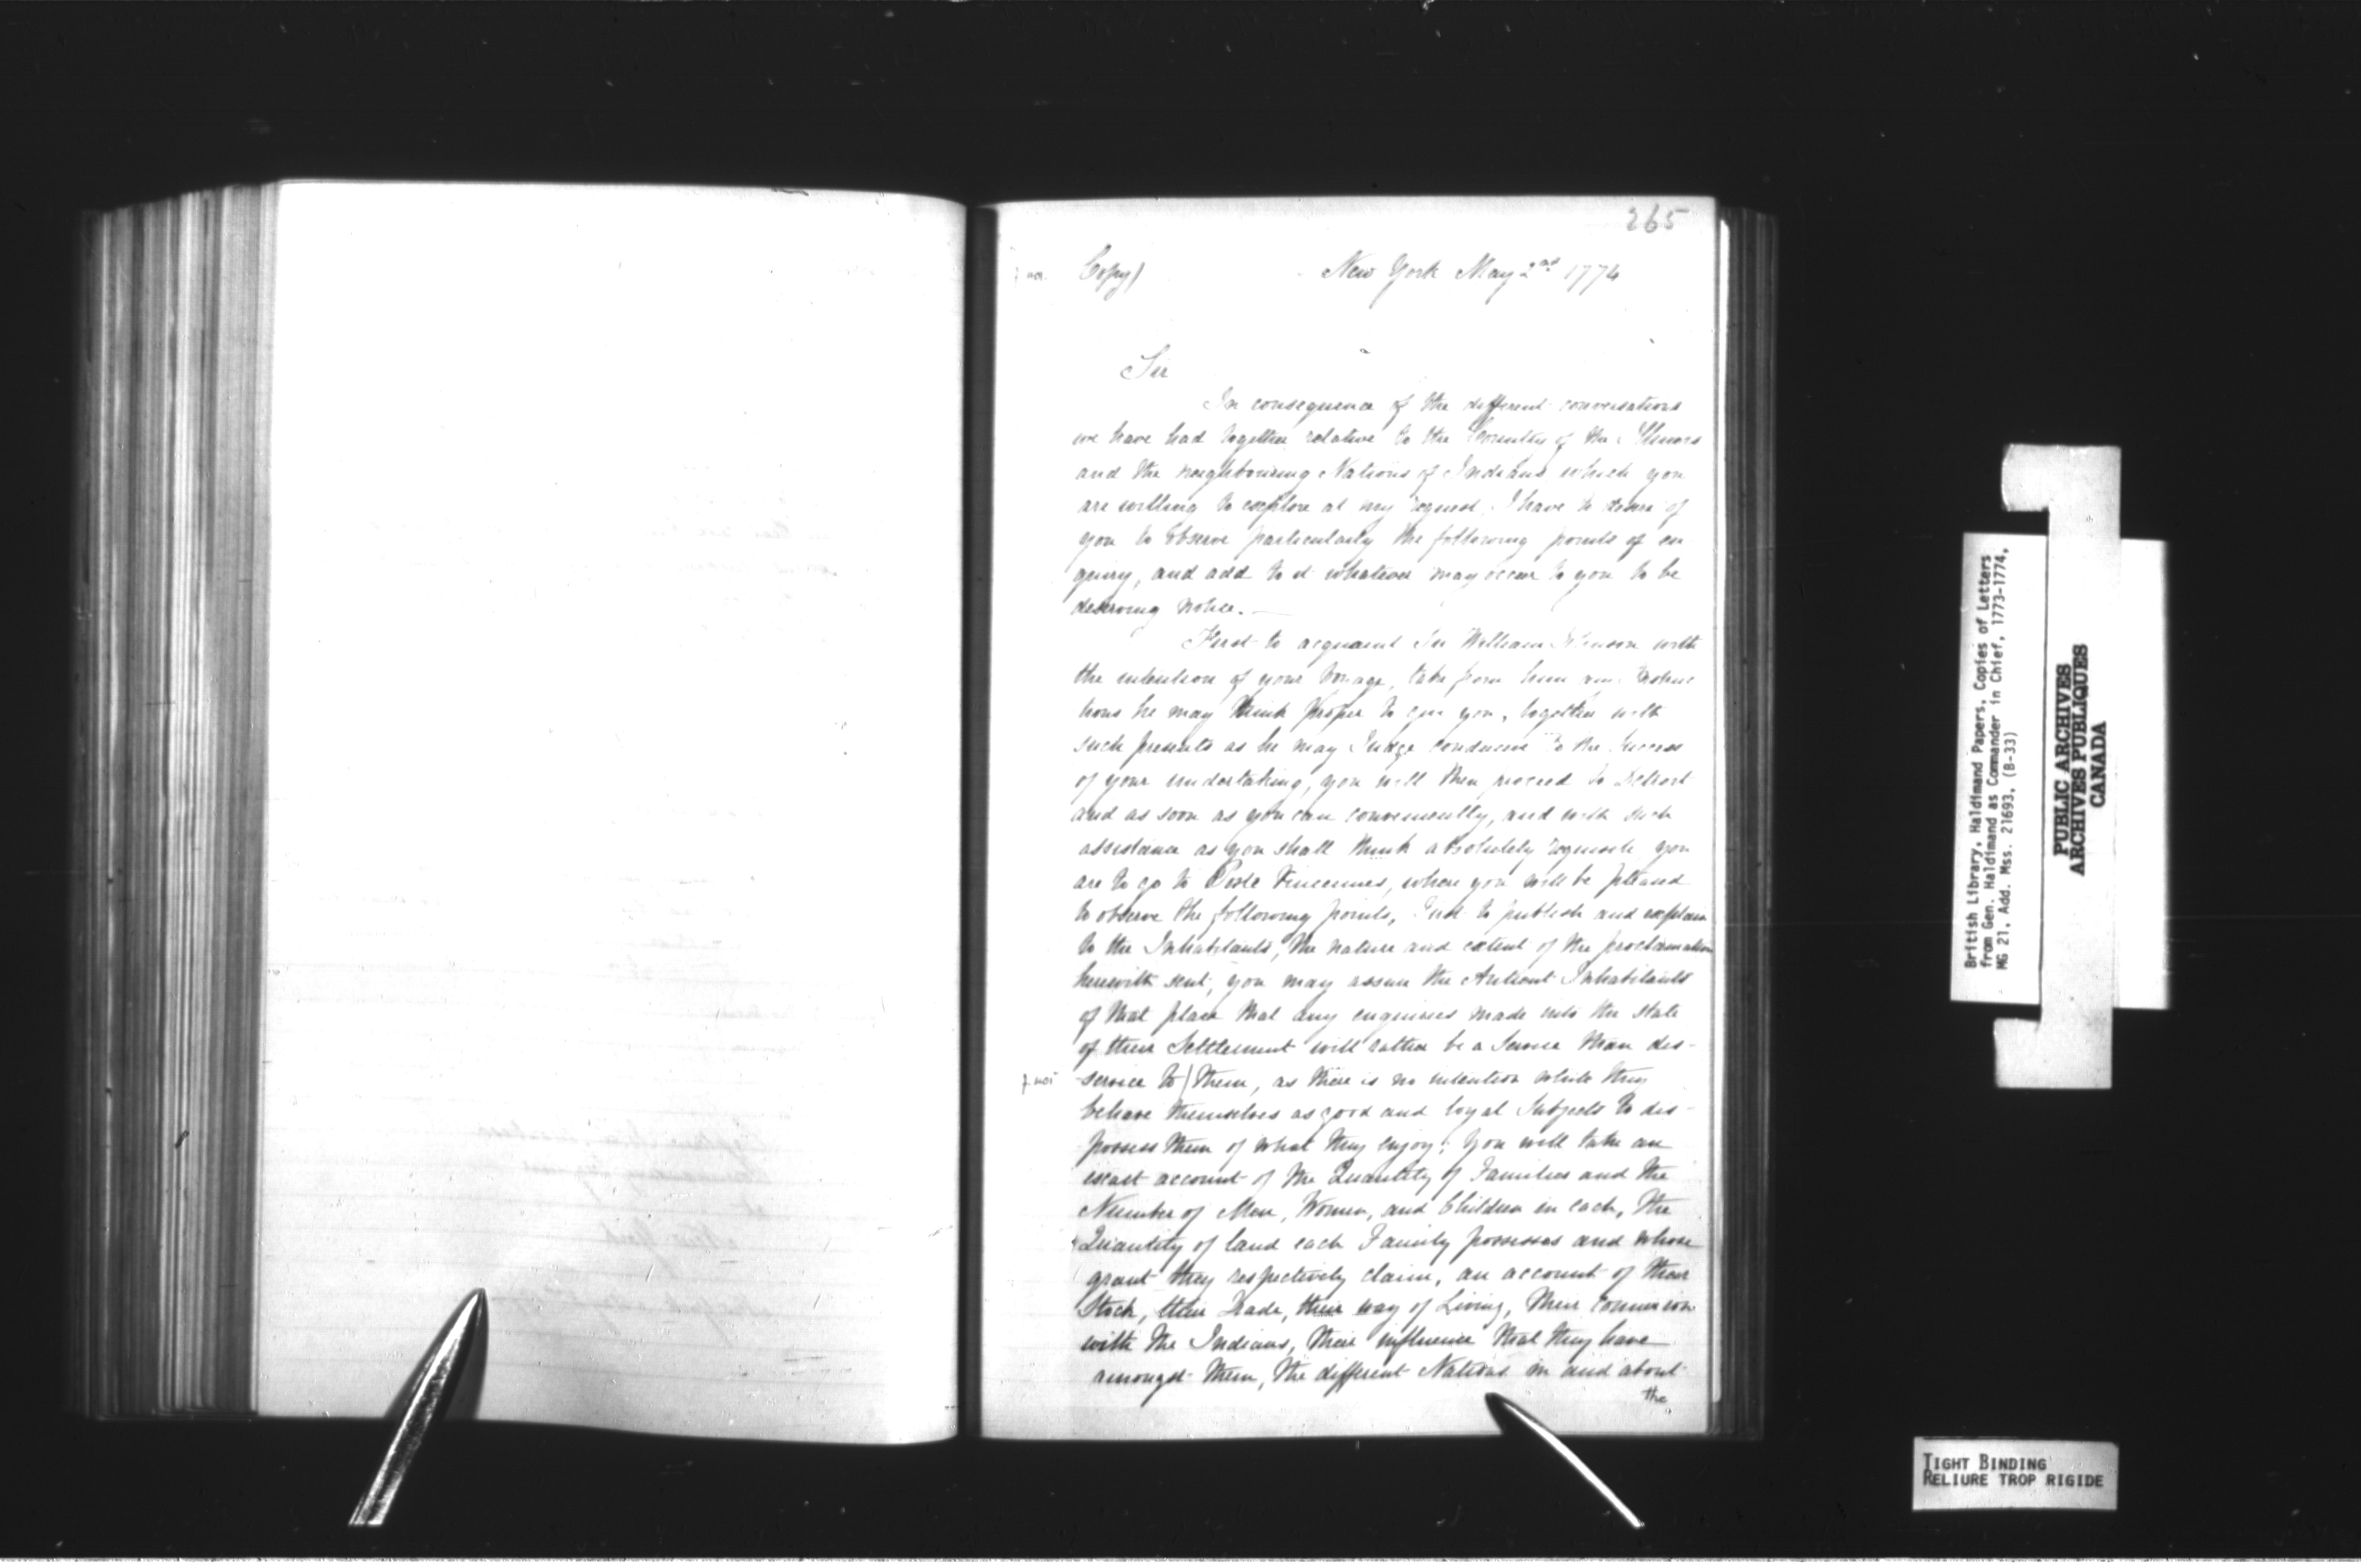 265
Copy) New York May 2nd 1774
Sir
In consequence of the different conversations
we have had together relative to the Country of the Illinois
and the neighbouring Nations of Indians which you
are willing to explore at my request, I have to desire of
you to observe particularly the following points of en
quiry, and add to it whatever may occur to you to be
deserving notice.—
First to acquaint Sir William Johnson with
the intention of your Voyage, take from him any Instruc
tions he may think proper to give you, together with
such presents as he may Judge conducive to the Success
of your undertaking, you will then proceed to Detroit
and as soon as you can conveniently, and with such
assistance as you shall think absolutely requisite you
are to go to Poste Vincennes, where you will be pleased
to observe the following points, First to publish and explain
to the Inhabitants, the nature and extent of the proclamation
herewith sent, you may assure the Antient Inhabitants
of that place that any enquiries made into the state
of their Settlement will rather be a Service than dis-
service to) them, as there is no intention while they
behave themselves as good and loyal Subjects to dis-
possess them of what they enjoy; You will take an
exact account of the Quantity of Families and the
Number of Men, Women, and Children in each, the
Quantity of land each Family possesses and whose
grant they respectively claim, an account of their
Stock, their Trade, their way of Living, their connexion
with the Indians, their influence that they have
amongst them, the different Nations in and about
the
British Library, Haldimand Papers, Copies of Letters
from Gen. Haldimand as Commander in Chief, 1773-1774,
MG 21, Add. Mss. 21693, (B-33)
PUBLIC ARCHIVES
ARCHIVES PUBLIQUES
CANADA
TIGHT BINDING
RELIURE TROP RIGIDE